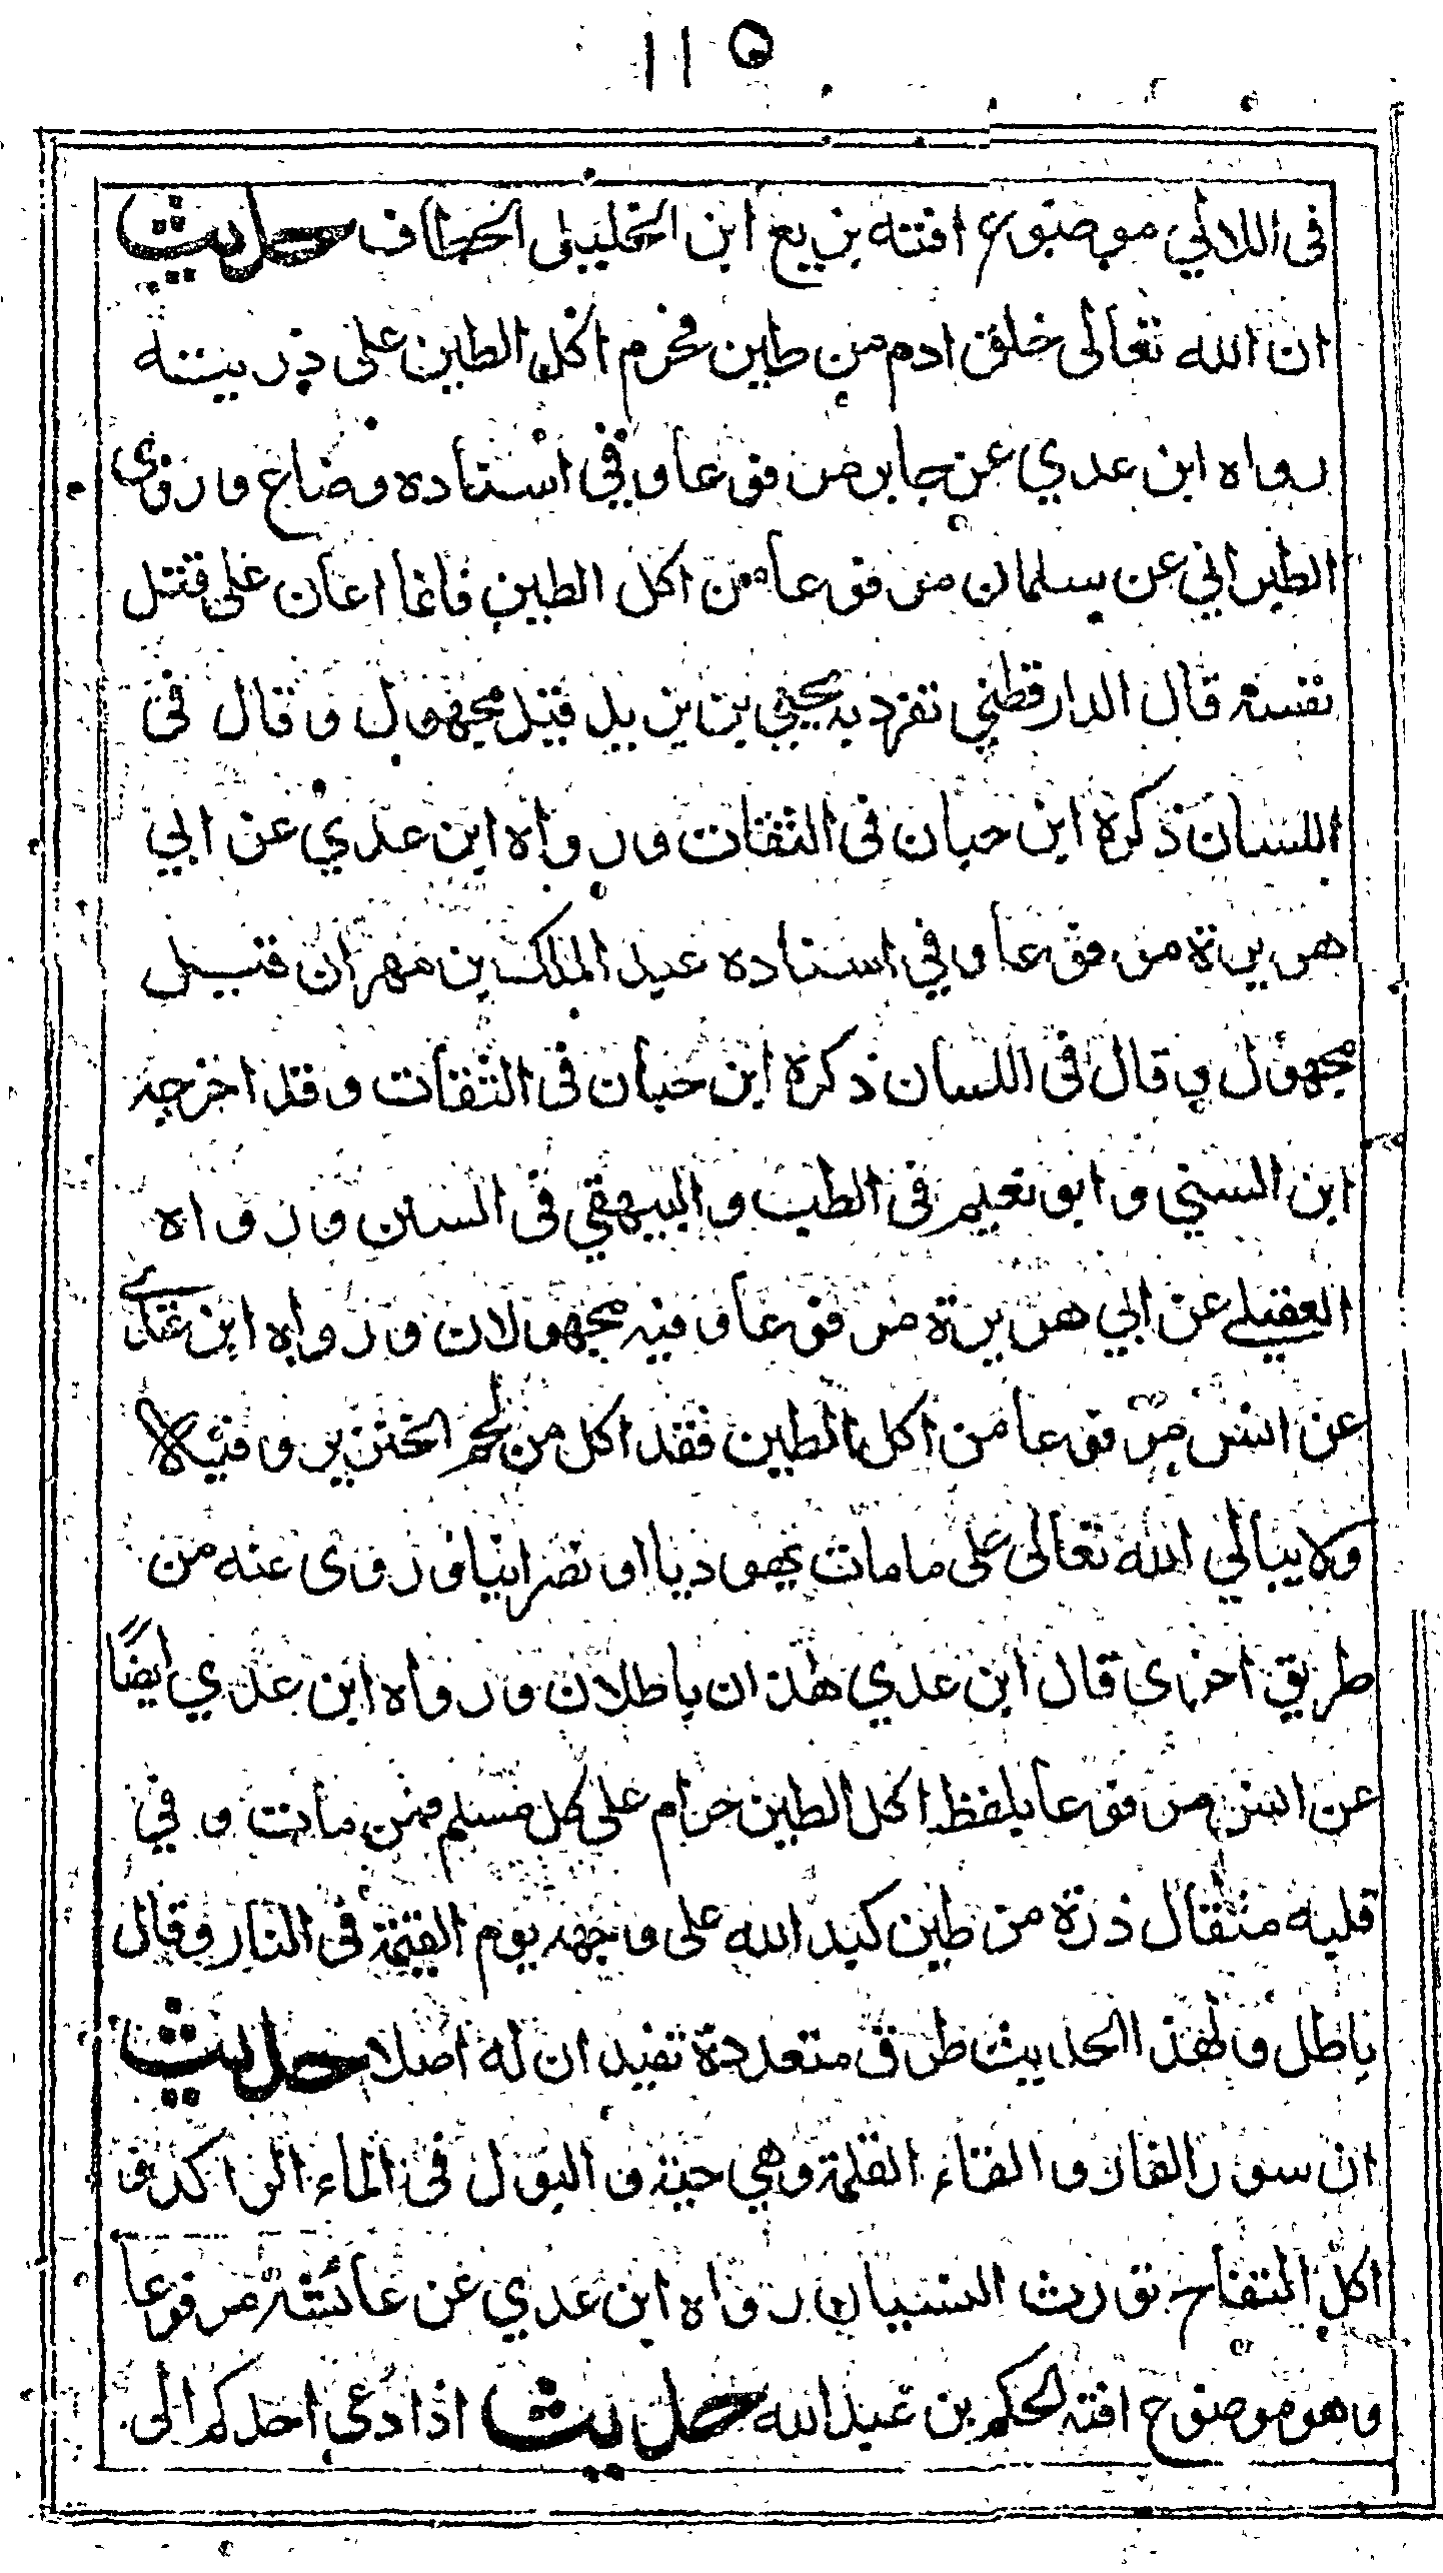 ١١٥
فى اللالي موضوع افته بزيع ابن الخليلى الخصاف حديث
ان الله تعالى خلق ادم من طين فحرم اكل الطين على ذريته
رواه ابن عدي عن جابر مرفوعا وفي اسناده وضاع وروى
الطبراني عن سلمان مرفوعا من اكل الطين فانما اعان على قتل
نفسه قال الدارقطني تفرد به يحيي بن يزيد قيل مجهول وقال فى
اللسان ذكره ابن حبان فى الثقات ورواه ابن عدي عن ابي
هريرة مرفوعا وفي اسناده عبد الملك بن مهران قيل
مجهول وقال فى اللسان ذكره ابن حبان فى الثقات وقد اخرجه
ابن السني وابو نعيم فى الطب والبيهقي فى السنن ورواه
العقيلے عن ابي هريرة مرفوعا وفيه مجهولان ورواه ابن عدے
عن انس مرفوعا من اكل الطين فقد اكل من لحم الخنزير وفيه لا
ولا يبالي الله تعالى على ما مات يهوديا او نصرانيا وروى عنه من
طريق اخرى قال ابن عدي هذان باطلان ورواه ابن عدي ايضًا
عن انس مرفوعا بلفظ اكل الطين حرام على كل مسلم فمن مات و في
قلبه مثقال ذرة من طين كبه الله على وجهه يوم القيٰمة فى النار وقال
باطل ولهذا الحديث طرق متعددة تفيد ان له اصلا حديث
ان سور الفار والقاء القلمة وهي حية والبول فى الماء الراكد و
اكل التفاح تورث النسيان رواه ابن عدي عن عائشة مرفوعا
وهو موضوع افته الحكم بن عبد الله حديث اذا دعى احدكم الى